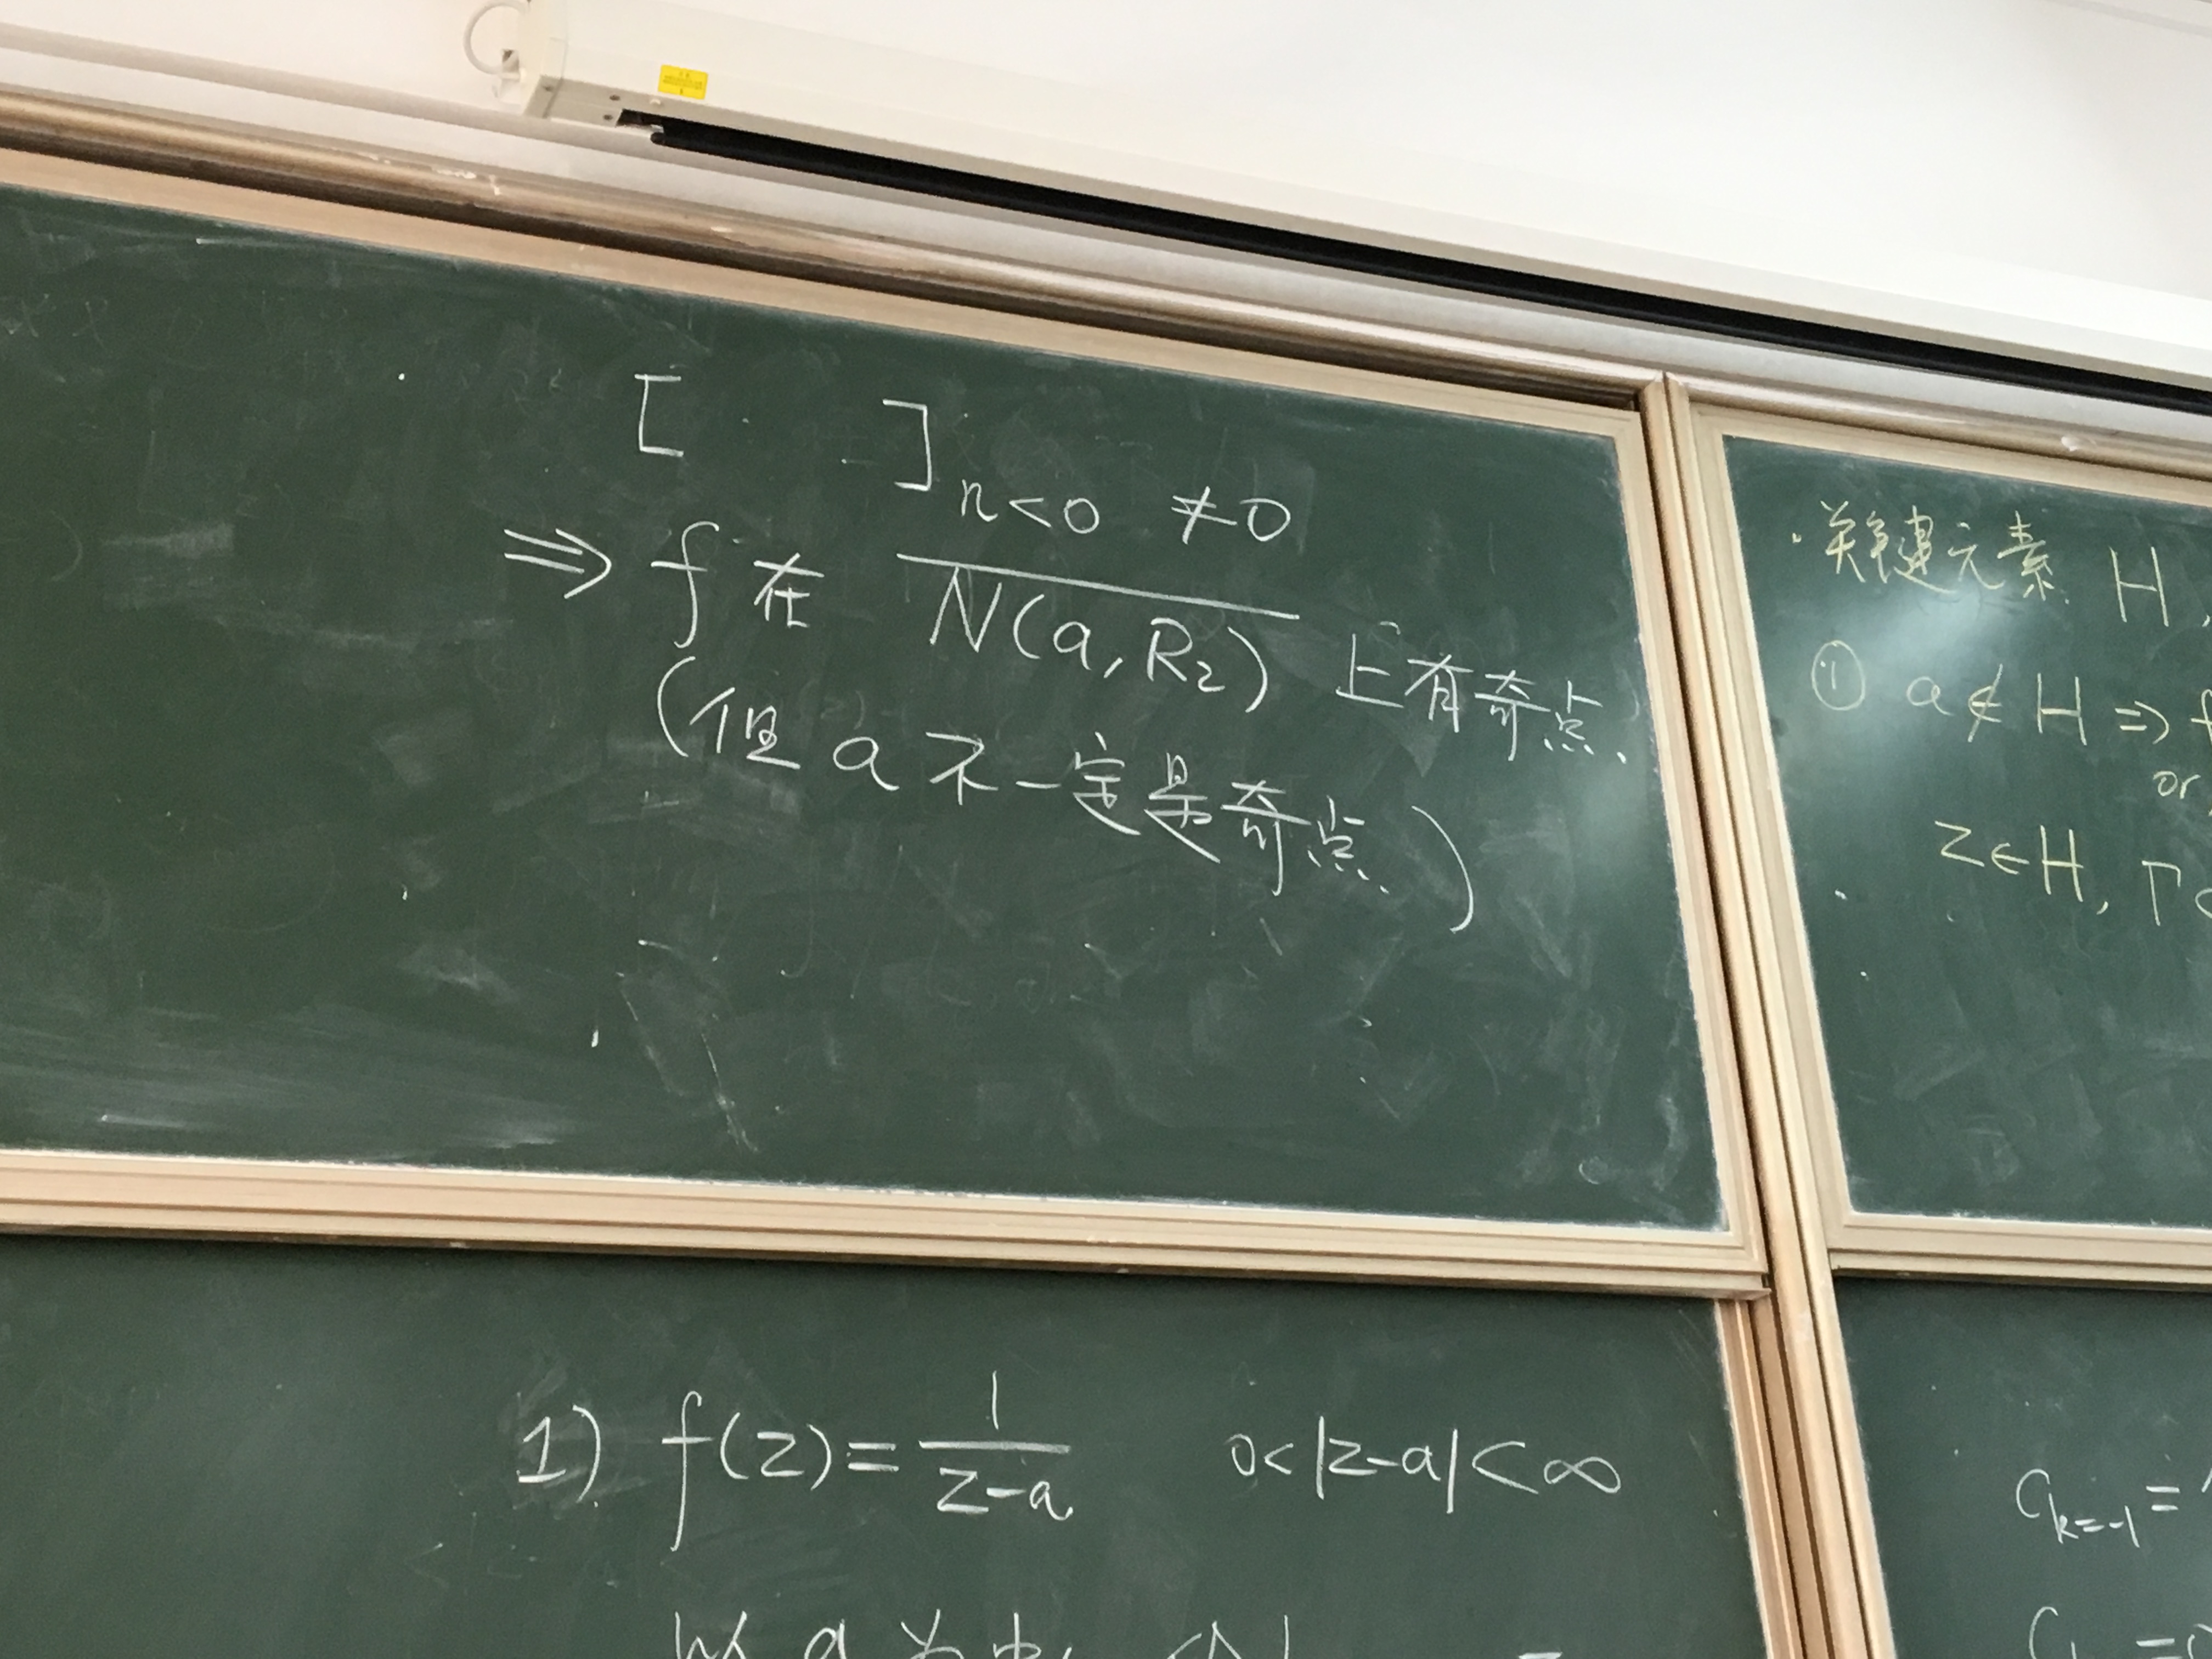 [ ]n<0 ≠0
⇒ f在 \overline{N(a,R₂)} 上有奇点、
(但a不一定是奇点、)
1) f(z)=\frac{1}{z-a} 0<|z-a|<∞
以a为中心
·关键元素 H,
① a∉H ⇒ f
or
z∈H, Γ
C_{k=-1}=